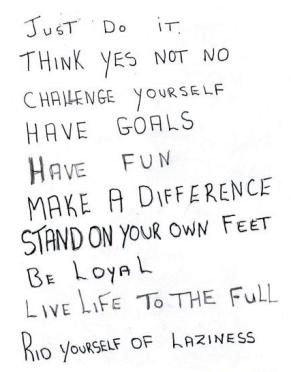 JUST DO IT.
THINK YES NOT NO
CHALLENGE YOURSELF
HAVE GOALS
HAVE FUN
MAKE A DIFFERENCE
STAND ON YOUR OWN FEET
BE LOYAL
LIVE LIFE TO THE FULL
RID YOURSELF OF LAZINESS